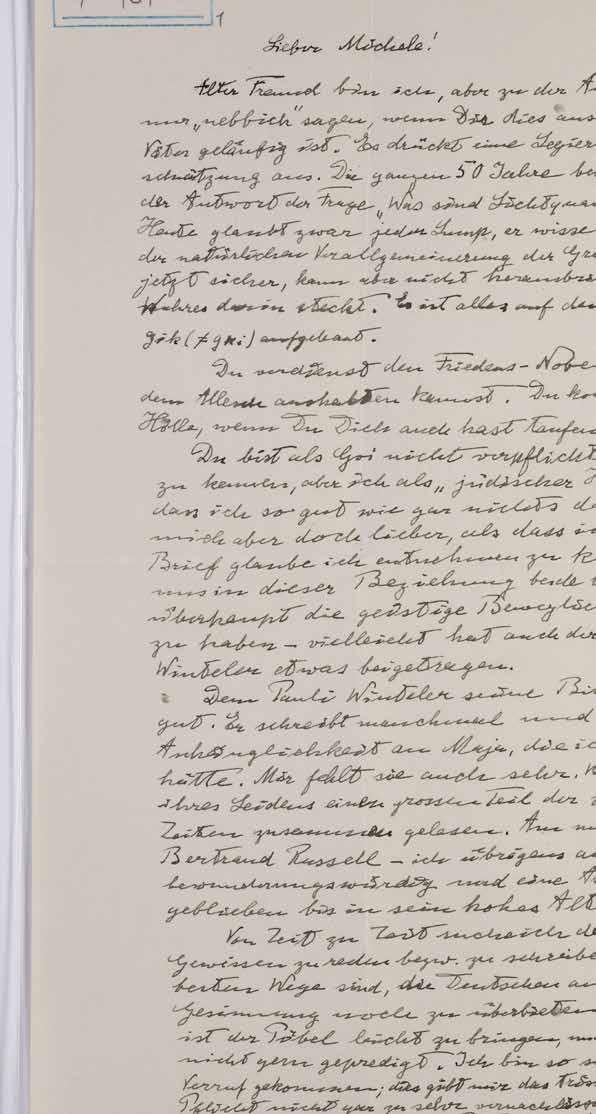 1
Lieber Michele!
Alter Freund bin ich, aber zu der
nur „nebbich" sagen, wenn Dir dies
Väter geläufig ist. Es drückt eine
schätzung aus. Die ganzen 50 Jahre
der Antwort der Frage „Was sind
Heute glaubt zwar jeder Lump, er wisse
der natürlichen Verallgemeinerung der
jetzt sicher, kann aber nicht
Wahres darin steckt. Es ist alles auf
gik (≠ gki) aufgebaut.
Du verdienst den Friedens-
dem Allem aushalten kannst. Du
Hölle, wenn Du Dich auch hast
Du bist als Goi nicht
zu kennen, aber ich als „jüdischer
dass ich so gut wie gar nichts
mich aber doch lieber, als dass
Brief glaube ich entnehmen zu
uns in dieser Beziehung beide
überhaupt die geistige
zu haben – vielleicht hat auch
Winteler etwas beigetragen.
Dem Pauli Winteler seine
gut. Er schreibt manchmal und
Anhänglichkeit an Maja, die
hätte. Mir fehlt sie auch sehr.
ihres Leidens einen grossen Teil der
Zeiten zusammen gelesen. Am
Bertrand Russell – ich übrigens
bewunderungswürdig und eine
geblieben bis in sein hohes
Von Zeit zu Zeit suche ich
Gewissen zu reden bezw. zu
besten Wege sind, die Deutschen
Gesinnung noch zu
ist der Pöbel leicht zu bringen,
nicht gern gepredigt. Ich bin so
Verruf gekommen; dies gibt mir das
Pflicht nicht gar zu sehr